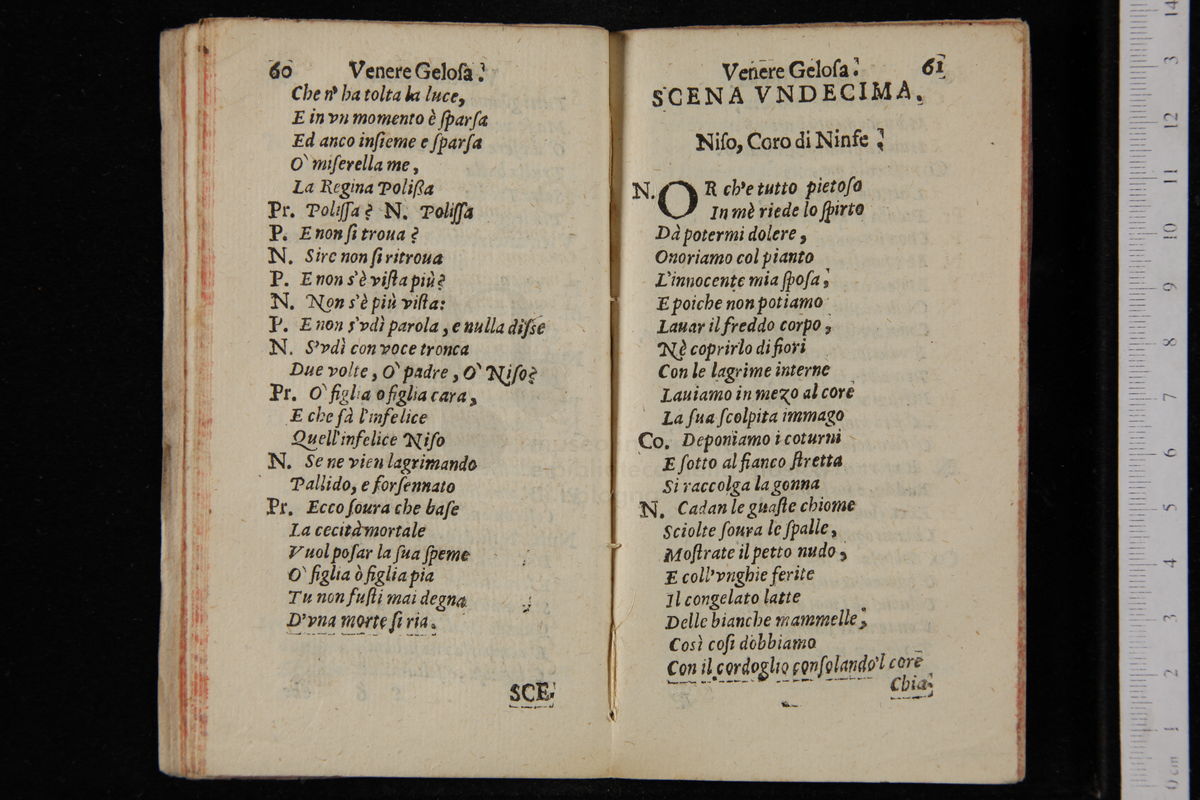 60 Venere Gelosa.
Che n' ha tolta la luce,
E in vn momento è ſparſa
Ed anco inſieme e ſparſa
O' miſerella me,
La Regina Polißa
Pr. Poliſſa? N. Poliſſa
P. E non ſi troua?
N. Sire non ſi ritroua
P. E non s'è viſta più?
N. Non s'è più viſta:
P. E non s'vdì parola, e nulla diſse
N. S'vdì con voce tronca
Due volte, O' padre, O' Niſo?
Pr. O' figlia o figlia cara,
E che fà l'infelice
Quell'infelice Niſo
N. Se ne vien lagrimando
Pallido, e forſennato
Pr. Ecco ſoura che baſe
La cecità mortale
Vuol poſar la ſua ſpeme
O' figlia ò figlia pia
Tu non fuſti mai degna
D'vna morte ſi ria.
SCE.
Venere Geloſa. 61
SCENA VNDECIMA.
Niſo, Coro di Ninfe.
N. OR ch'e tutto pietoſo
In mè riede lo ſpirto
Dà potermi dolere,
Onoriamo col pianto
L'innocente mia ſpoſa,
E poiche non potiamo
Lauar il freddo corpo,
Nè coprirlo di fiori
Con le lagrime interne
Lauiamo in mezo al core
La ſua ſcolpita immago
Co. Deponiamo i coturni
E ſotto al fianco ſtretta
Si raccolga la gonna
N. Cadan le guaſte chiome
Sciolte ſoura le ſpalle,
Moſtrate il petto nudo,
E coll'vnghie ferite
Il congelato latte
Delle bianche mammelle,
Così coſi dobbiamo
Con il cordoglio conſolando'l core
Chia.
0 cm 1 2 3 4 5 6 7 8 9 10 11 12 3 14